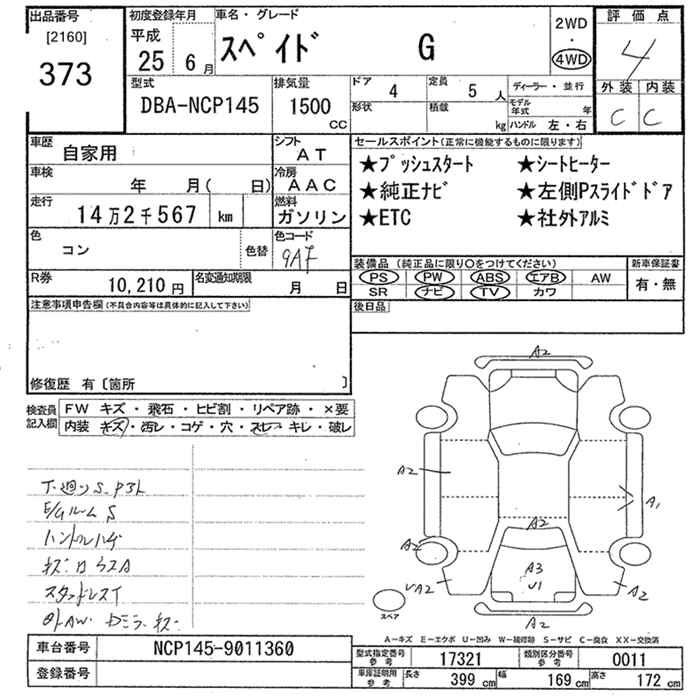 出品番号
[2160]
373
初度登録年月
平成
25 6月
車名・グレード
スペイド G
2WD
・
4WD
評価点
4
外装 内装
C C
型式
DBA-NCP145
排気量
1500
CC
ドア 4
定員 5 人
ディーラー・並行
形状
積載 kg
モデル年式 年
ハンドル 左・右
車歴 自家用
シフト AT
車検 年 月( 日)
冷房 AAC
走行 14万2千567 km
燃料 ガソリン
色 コン
色替
色コード
9AF
R券 10,210円
名変通知期限 月 日
セールスポイント(正常に機能するものに限ります)
★プッシュスタート ★シートヒーター
★純正ナビ ★左側Pスライドドア
★ETC ★社外アルミ
装備品(純正品に限り〇をつけてください)
PS PW ABS エアB AW
SR ナビ TV カワ
新車保証書
有・無
後日品
注意事項申告欄(不具合内容等は具体的に記入して下さい)
修復歴 有〔箇所 〕
検査員記入欄
FW キズ・飛石・ヒビ割・リペア跡・×要
内装 キズ・汚レ・コゲ・穴・スレ・キレ・破レ
下廻りS.
E/GルームS
ハンドルハゲ
スタッドレス
A2
A2
A1
A2
A2
A3
U1
A2
A2
A2
スペア
A−キズ E−エクボ U−凹み W−補修跡 S−サビ C−腐食 XX−交換済
車台番号 NCP145-9011360
登録番号
型式指定番号 参考 17321
類別区分番号 参考 0011
車庫証明用 参考 長さ 399 cm 幅 169 cm 高さ 172 cm